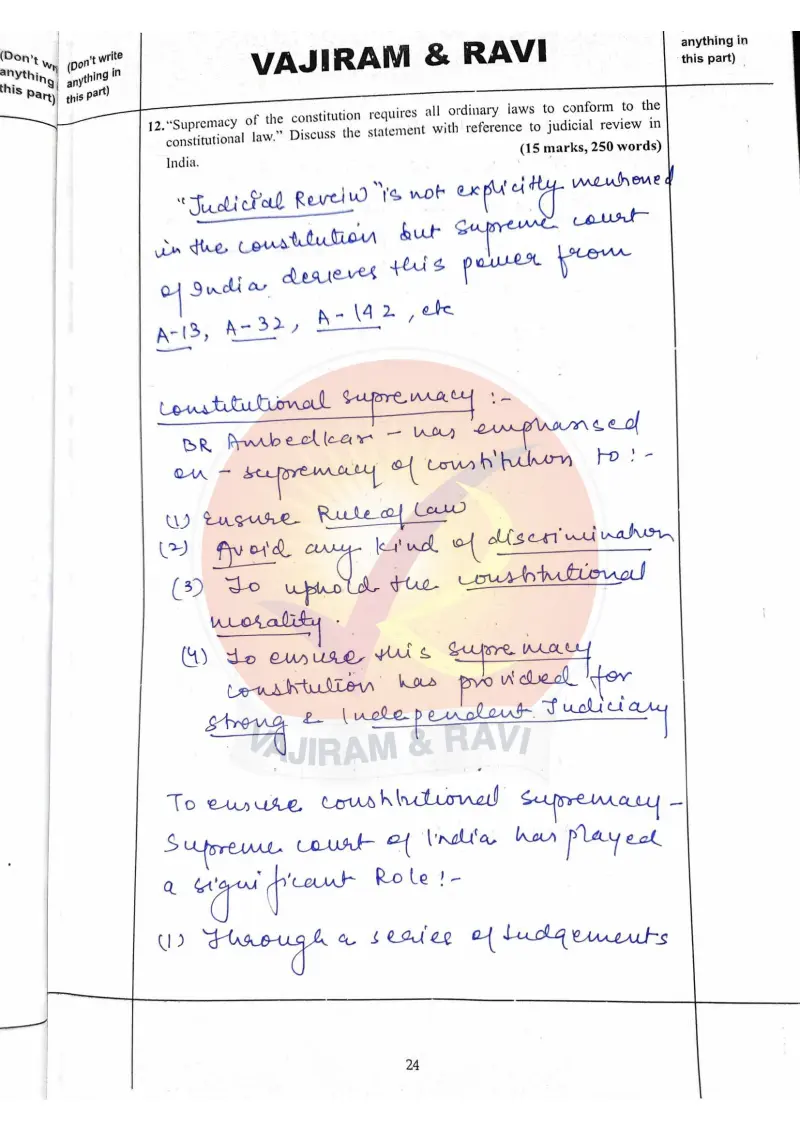 (Don't wr
anything
this part)
(Don't write
anything in
this part)
VAJIRAM & RAVI
anything in
this part)
12."Supremacy of the constitution requires all ordinary laws to conform to the
constitutional law." Discuss the statement with reference to judicial review in
India.
(15 marks, 250 words)
"Judicial Reveiw" is not explicitly mentioned
in the constitution but supreme court
of India derieves this power from
A-13, A-32, A-142, etc
Constitutional supremacy :-
BR Ambedkar - has emphansed
on - supremacy of constitution to :-
(1) Ensure Rule of Law
(2) Avoid any kind of discrimination
(3) To uphold the constitutional
morality.
(4) To ensure this supremacy
constitution has provided for
strong & Independent Judiciary
VAJIRAM & RAVI
To ensure constitutional supremacy -
Supreme court of India has played
a significant Role :-
(1) Through a series of Judgements
24